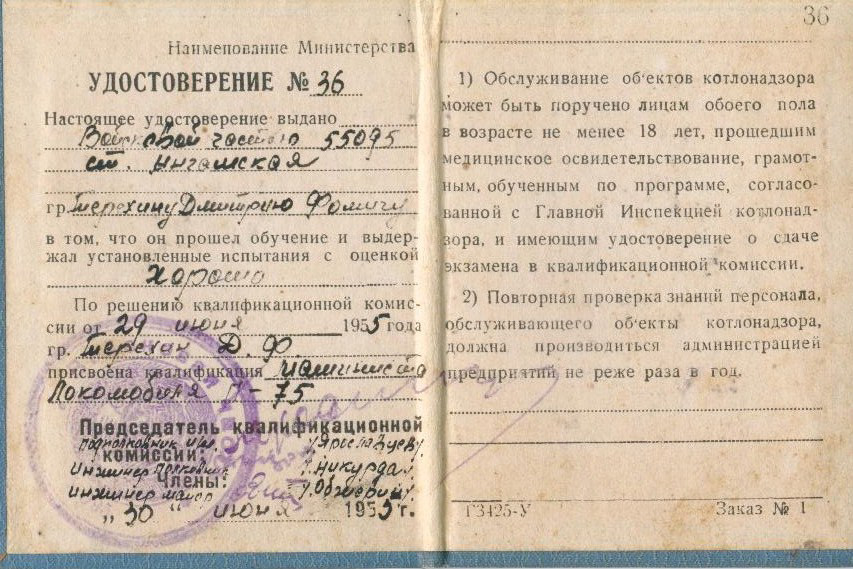 Наименование Министерства
УДОСТОВЕРЕНИЕ № 36
Настоящее удостоверение выдано
Войсковой частью 55095
ст. Ангамская
гр. Терехину Дмитрию Фомичу
в том, что он прошел обучение и выдер-
жал установленные испытания с оценкой
Хорошо
По решению квалификационной комис-
сии от 29 июня 1955 года
гр. Терехин Д. Ф
присвоена квалификация машиниста
Локомобиля П-75
Председатель квалификационной
подполковник
комиссии:
инженер полковник
Члены:
инженер майор
„30“ июня 1955 г.
36
1) Обслуживание об'ектов котлонадзора
может быть поручено лицам обоего пола
в возрасте не менее 18 лет, прошедшим
медицинское освидетельствование, грамот-
ным, обученным по программе, согласо-
ванной с Главной Инспекцией котлонад-
зора, и имеющим удостоверение о сдаче
экзамена в квалификационной комиссии.
2) Повторная проверка знаний персонала,
обслуживающего об'екты котлонадзора,
должна производиться администрацией
предприятий не реже раза в год.
ГЗ425-У Заказ № 1